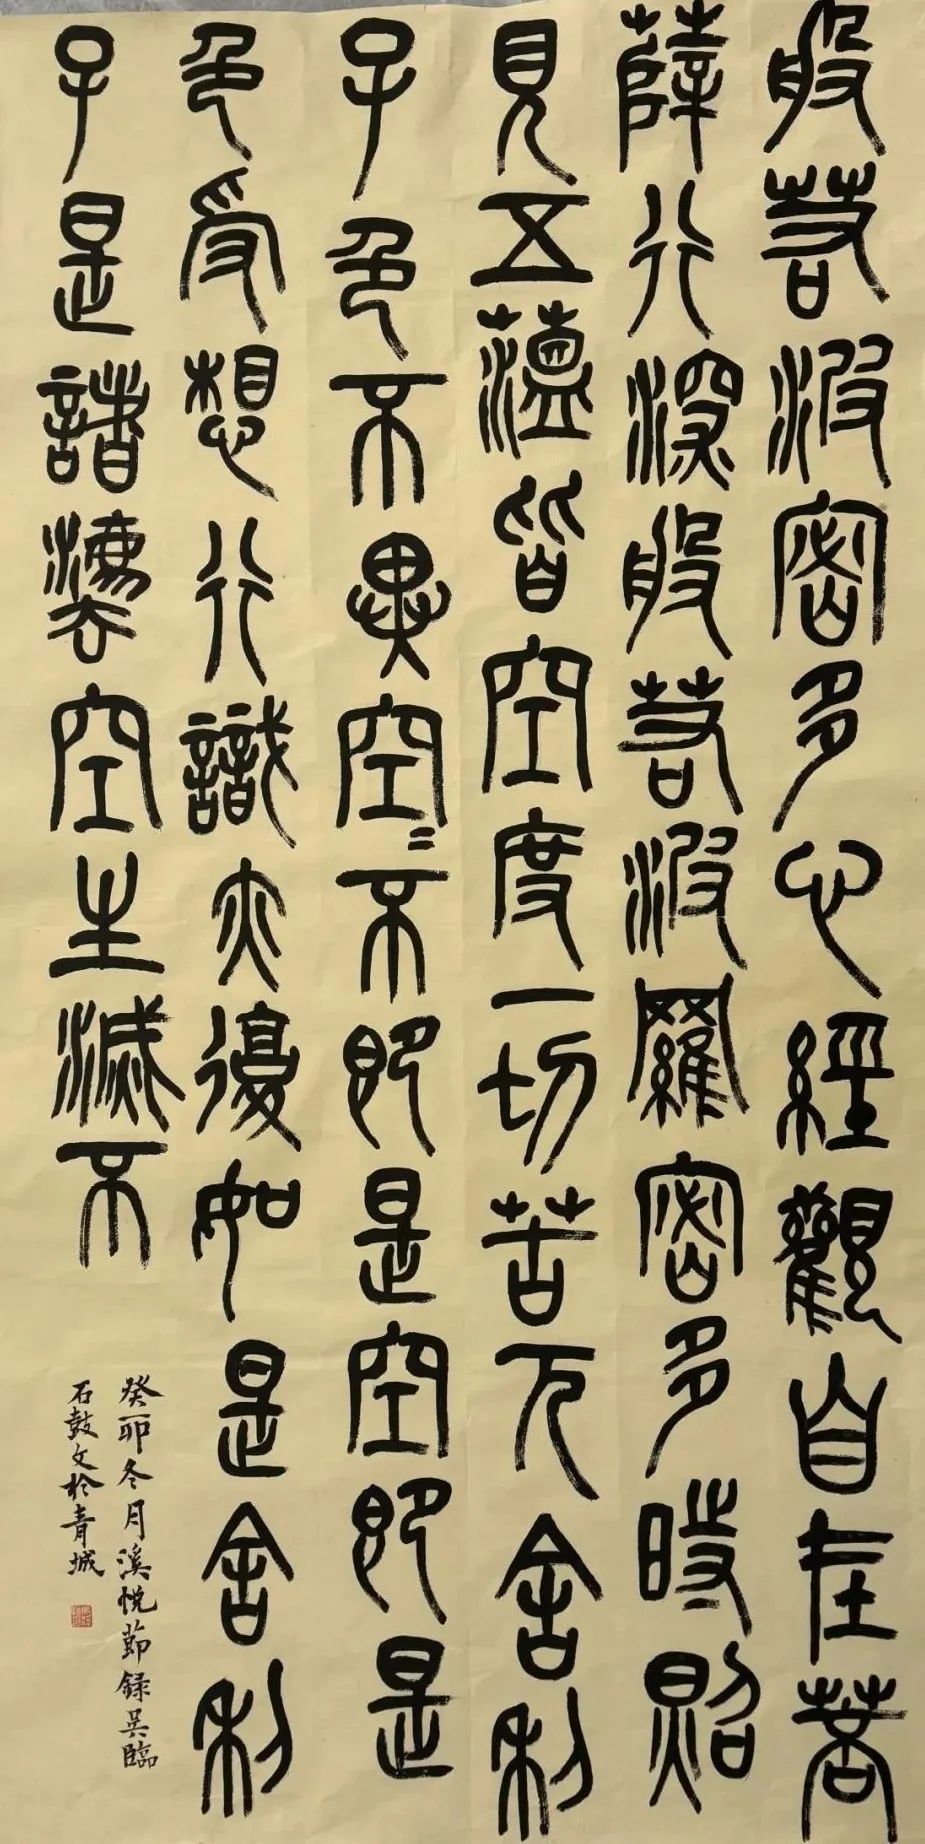 般若波密多心經觀自在菩
薩行深般若波羅密多時照
見五蘊皆空度一切苦厄舍利
子色不異空〻不即是空即是
色受想行識亦復如是舍利
子是諸灋空生滅不
癸卯冬月溪悅節録吳臨
石鼓文於青城